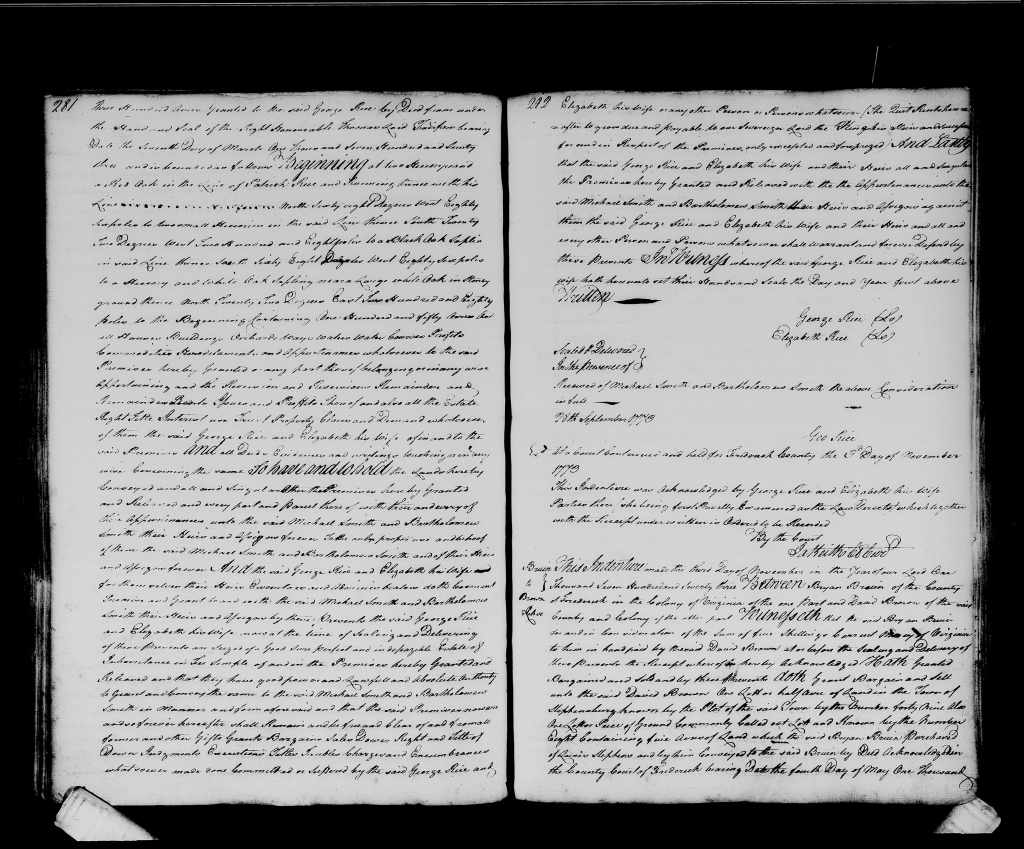 281
Three Hundred Acres Granted to the said George Rice by Deed from under
the Hand and Seal of the Right Honourable Thomas Lord Fairfax bearing
Date the Seventh Day of March One Thous and Seven Hundred and Seventy
three and is bounded as follows Beginning at two Hickorys and
a Red Oak in the Line of Patrick Rice and Running thence with his
Line North Sixty eight Degrees West Eighty
Six poles to two small Hickories in the said Line thence South Twenty
Two Degrees West Two Hundred and Eighty poles to a Black Oak Saplin
in said Line thence South Sixty Eight Degrees West Eighty Six poles
to a Hickory and White Oak Sapling near a Large white Oak in Stoney
ground thence North Twenty Two Degrees East Two Hundred and Eighty
poles to the Beginning Containing One Hundred and fifty Acres and
all Houses Buildings Orchards Ways Waters Water Courses Profits
Commodities Hereditaments and Appurtenances whatsoever to the said
Premises hereby Granted or any part thereof belonging or in any wise
Appertaining and the Reversion and Reversions Remainder and
Remainders Rents Issues and Profits thereof and also all the Estate
Right Title Interest use Trust Property Claim and Demand whatsoever
of them the said George Rice and Elizabeth his Wife of in and to the
said Premises and all Deeds Evidences and writings touching or in any
wise Concerning the same To have and to hold the Lands hereby
Conveyed and all and Singular other the Premises hereby Granted
and Released and every part and parcel thereof with their and every of
their Appurtenances unto the said Michael Smith and Bartholomew
Smith their Heirs and Assigns forever To the only proper use and behoof
of them the said Michael Smith and Bartholomew Smith and of their Heirs
and Assigns forever And the said George Rice and Elizabeth his Wife
for themselves their Heirs Executors and Administrators doth Covenant
Promise and Grant to and with the said Michael Smith and Bartholomew
Smith their Heirs and Assigns by these Presents the said George Rice
and Elizabeth his Wife now at the time of Sealing and Delivering
of these Presents are Seized of a Good Sure perfect and indefeazable Estate of
Inheritance in Fee Simple of and in the Premises hereby Granted and
Released and that they have good power and Lawfull and Absolute Authority
to Grant and Convey the same to the said Michael Smith and Bartholomew
Smith in Manner and form aforesaid and that the said Premises now are
and so forever hereafter shall Remain and be free and Clear of and from all
former and other Gifts Grants Bargains Sales Dower Right and Title of
Dower Judgments Executions Titles Troubles Charges and Encumbrances
whatsoever made done Committed or Suffered by the said George Rice and
282
Elizabeth his Wife or any other Person or Persons whatsoever (The Quit Rents here
after to grow due and payable to our Sovereign Lord the King his Heirs and Successors
for and in Respect of the Premises only excepted and foreprized And Lastly
that the said George Rice and Elizabeth his Wife and their Heirs all and singular
the Premises hereby Granted and Released with the the Appurtenances unto the
said Michael Smith and Bartholomew Smith their Heirs and Assigns against
them the said George Rice and Elizabeth his Wife and their Heirs and all and
every other Person and Persons whatsoever shall warrant and forever Defend by
these Presents In Witness whereof the said George Rice and Elizabeth his
wife hath hereunto set their Hands and Seals the Day and Year first above
Written
George Rice (Ls)
Elizabeth Rice (Ls)
Sealed & Delivered
In the Presence of
Received of Michael Smith and Bartholomew Smith the above Consideration
in full
28th September 1773
Geo Rice
At a Court Continued and held for Frederick County the 3d Day of November
1773
This Indenture was Acknowledged by George Rice and Elizabeth his Wife
Parties there (She being first Privily Examined as the Law Directs) which together
with the Receipt underwritten is Ordered to be Recorded
By the Court
Ja Keith Cl Cur
Bruin
to
Brown
Release
This Indenture made the third Day of November in the Year of our Lord One
Thousand Seven Hundred and Seventy three Between Bryan Bruin of the County
of Frederick in the Colony of Virginia of the one Part and David Brown of the said
County and Colony of the other part Witnesseth that the said Bryan Bruin
for and in Consideration of the Sum of five Shillings Current Money of Virginia
to him in hand paid by the said David Brown at or before the Sealing and Delivery of
these Presents the Receipt whereof is hereby Acknowledged Hath Granted
Bargained and Sold and by these Presents doth Grant Bargain and Sell
unto the said David Brown One Lott or half Acre of Land in the Town of
Stephensburg known by the Plot of the said Town by the Number forty Nine Also
One Lott or Piece of Ground Commonly Called out Lott and Known by the Number
Eight Containing five Acres of Land which the said Bryan Bruin Purchased
of Lewis Stephens and by him Conveyed to the said Bruin by Deed Acknowledged in
the County Court of Frederick bearing Date the fourth Day of May One Thousand